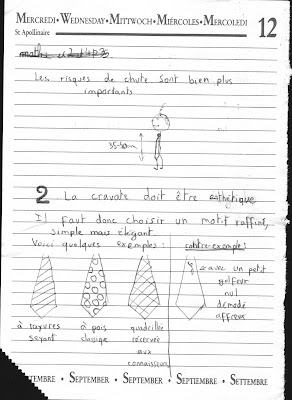 MERCREDI • WEDNESDAY • MITTWOCH • MIÉRCOLES • MERCOLEDI
St Apollinaire
12
Les risques de chute sont bien plus
importants
35-40cm
2 La cravate doit être esthétique
Il faut donc choisir un motif raffiné,
simple mais élégant.
Voici quelques exemples :
contre-exemple :
à rayures
seyant
à pois
classique
quadrillée
réservée
aux
connaisseurs
avec un petit
golfeur
nul
démodé
affreux
TEMBRE • SEPTEMBER • SEPTEMBER • SEPTIEMBRE • SETTEMBRE